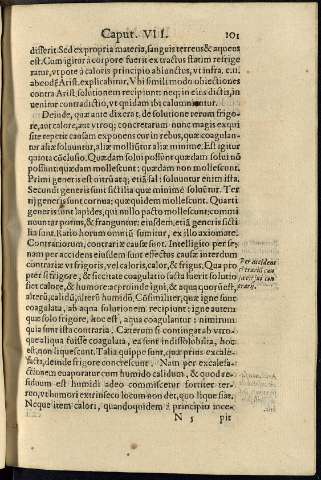 Caput. VII. 101
disserit. Sed ex propria materia, sanguis terreus & aqueus
est. Cum igitur à corpore fuerit extractus statim refrige
ratur, vt pote à caloris principio abiunctus, vt infra. c. 11.
abeodē Arist. explicabitur. Vbi simili modo obiectiones
contra Arist. solutionem recipiunt: neq; in eius dictis, in
uenitur contradictio, vt quidam ibi calumniantur.
Deinde, quæ ante dixerat. de solutione rerum frigo-
re, aut calore, aut vtroq; concretarum nunc magis exqui
site repetit causam exponens cur in rebus, quæ coagulan-
tur aliæ soluuntur, aliæ molliūtur aliæ minime. Est igitur
quinta cōclusio. Quædam solui possunt quædam solui nō
possunt: quædam mollescunt: quædam non mollescunt.
Primi generis est nitrū atq; etiā sal: soluuntur enim istȩ.
Secundi generis sunt fictilia quæ minime soluūtur. Ter
tij generis sunt cornua; quæquidem mollescunt. Quarti
generis sunt lapides, qui nullo pacto mollescunt: commi
nountur potius, & franguntur: eiusdem, etiā generis fictī
lia sunt. Ratio horum omniū sumitur, ex illo axiomate.
Contrariorum, contrariæ causæ sunt. Intelligito per se;
nam per accidens eiusdem effectus causæ interdum
contrariæ vt frigoris, vel caloris, calor, & frigus. Qua pro
pter si frigore, & siccitate coagulatio facta fuerit solutio
fiet calore, & humore ac proinde igni, & aqua; quorū est,
alterū, calidū, alterū humidū. Cōsimiliter, quæ igne sunt
coagulata, ab aqua solutionem recipiunt: igne autem
quæ solo frigore, at hoc est, aqua coagulantur: nimirum
quia sunt ista contraria. Cæterum si contingat ab vtro-
que aliqua fuisse coagulata, ea sunt indissolubilia, hoc
est, non liquescunt. Talia quippe sunt, quæ prius excale-
facta, deinde frigore concrescunt. Nam per excalefa-
ctionem euaporat cum humido calidum, & quod re-
siduum est humidi adeo commiscetur fortiter ter-
reo, vt humori extrinseco locum non det, quo lique fiāt.
Neque item calori, quandoquidem à principio ince-
N 5 pit
Per accidens